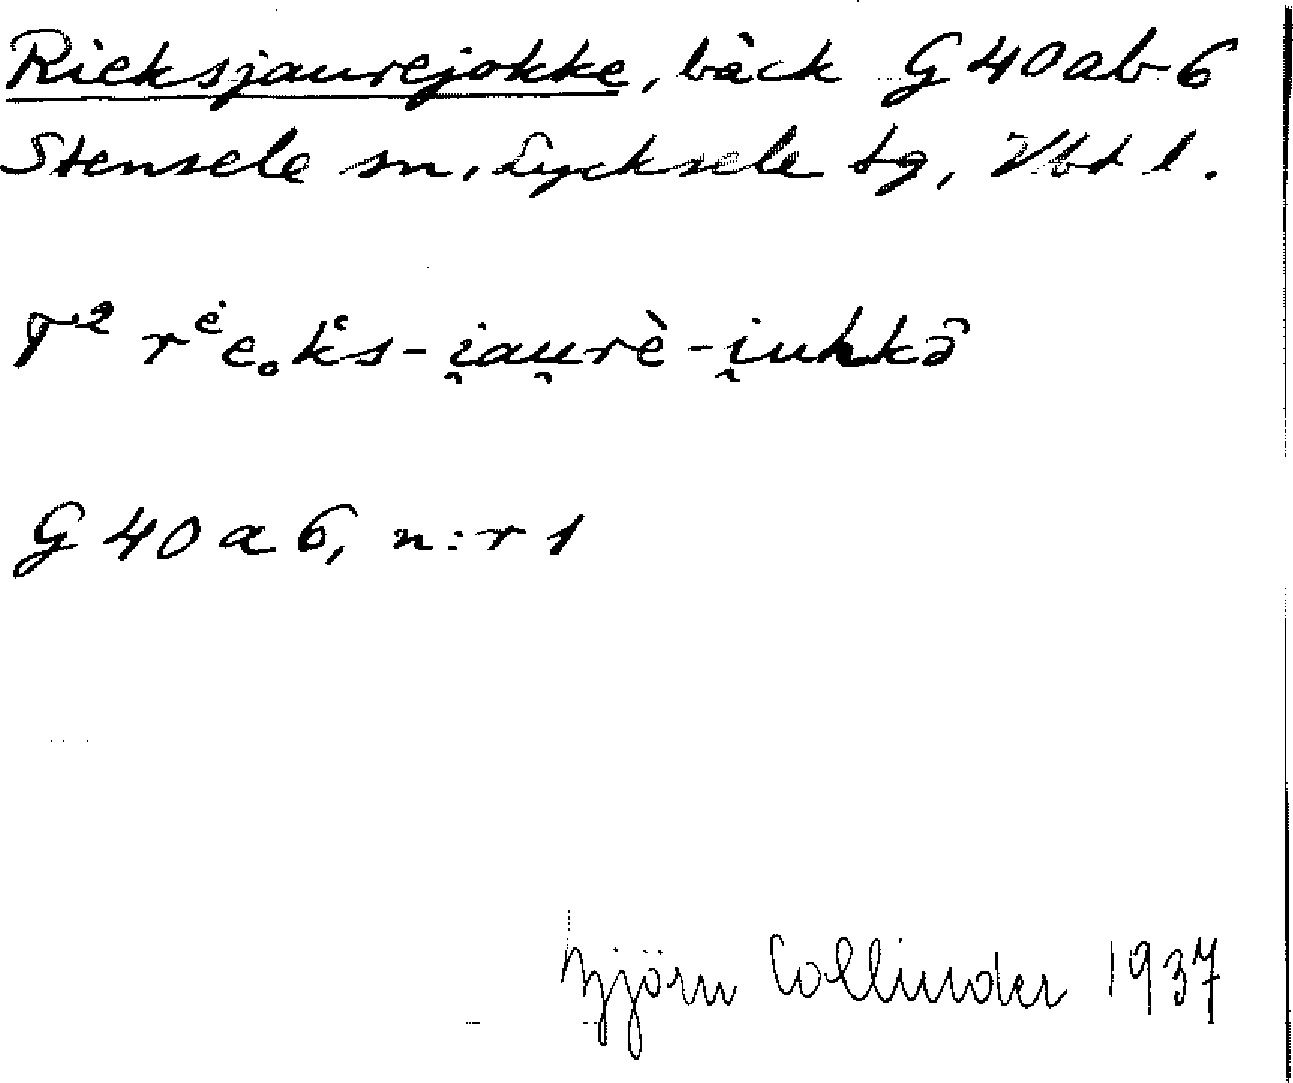 Rieksjaurejokke, bäck G 40 ab 6
Stensele sn, Lycksele tg, Vbt l.
T² rᵉ̇eₒk̔s-i̯au̯rè-i̯uhkkə̂
G 40 a 6, n:r 1
Björn Collinder 1937